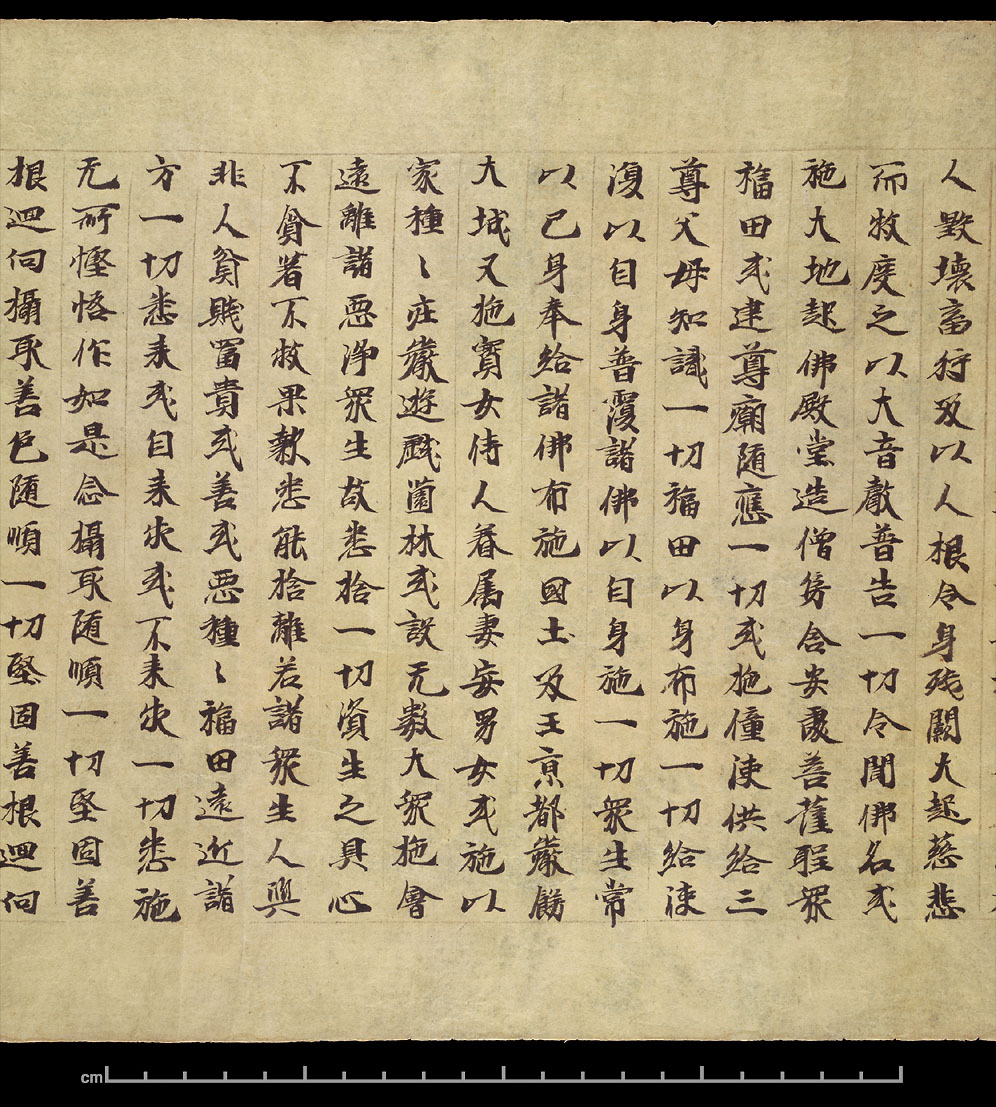 人毀壞畜行及以人根令身残闕大起慈悲
而救度之以大音聲普告一切令聞佛名或
施大地起佛殿堂造僧房舍安處菩薩聖眾
福田或建尊廟随應一切或施僮使供給三
尊父母知識一切福田以身布施一切給使
復以自身普覆諸佛以自身施一切眾生常
以己身奉給諸佛布施國土及王京都嚴餝
大城又施寶女侍人眷属妻妾男女或施以
家種〻庄嚴遊戲薗林或設无數大眾施會
遠離諸惡淨眾生故悉捨一切資生之具心
不貪著不救果報悉能捨離若諸眾生人與
非人貧賤冨貴或善或惡種〻福田遠近諸
方一切悉来或自来求或不来求一切悉施
无所慳悋作如是念攝取随順一切堅固善
根迴向攝取善色随順一切堅固善根迴向
cm